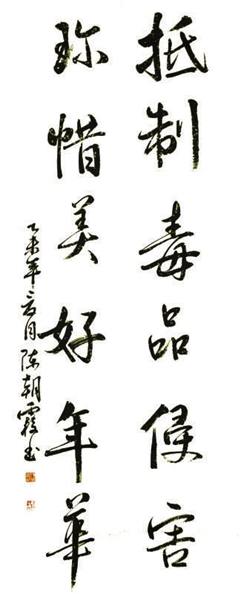 抵制毒品侵害
珍惜美好年华
乙未年三月陈朝霞书